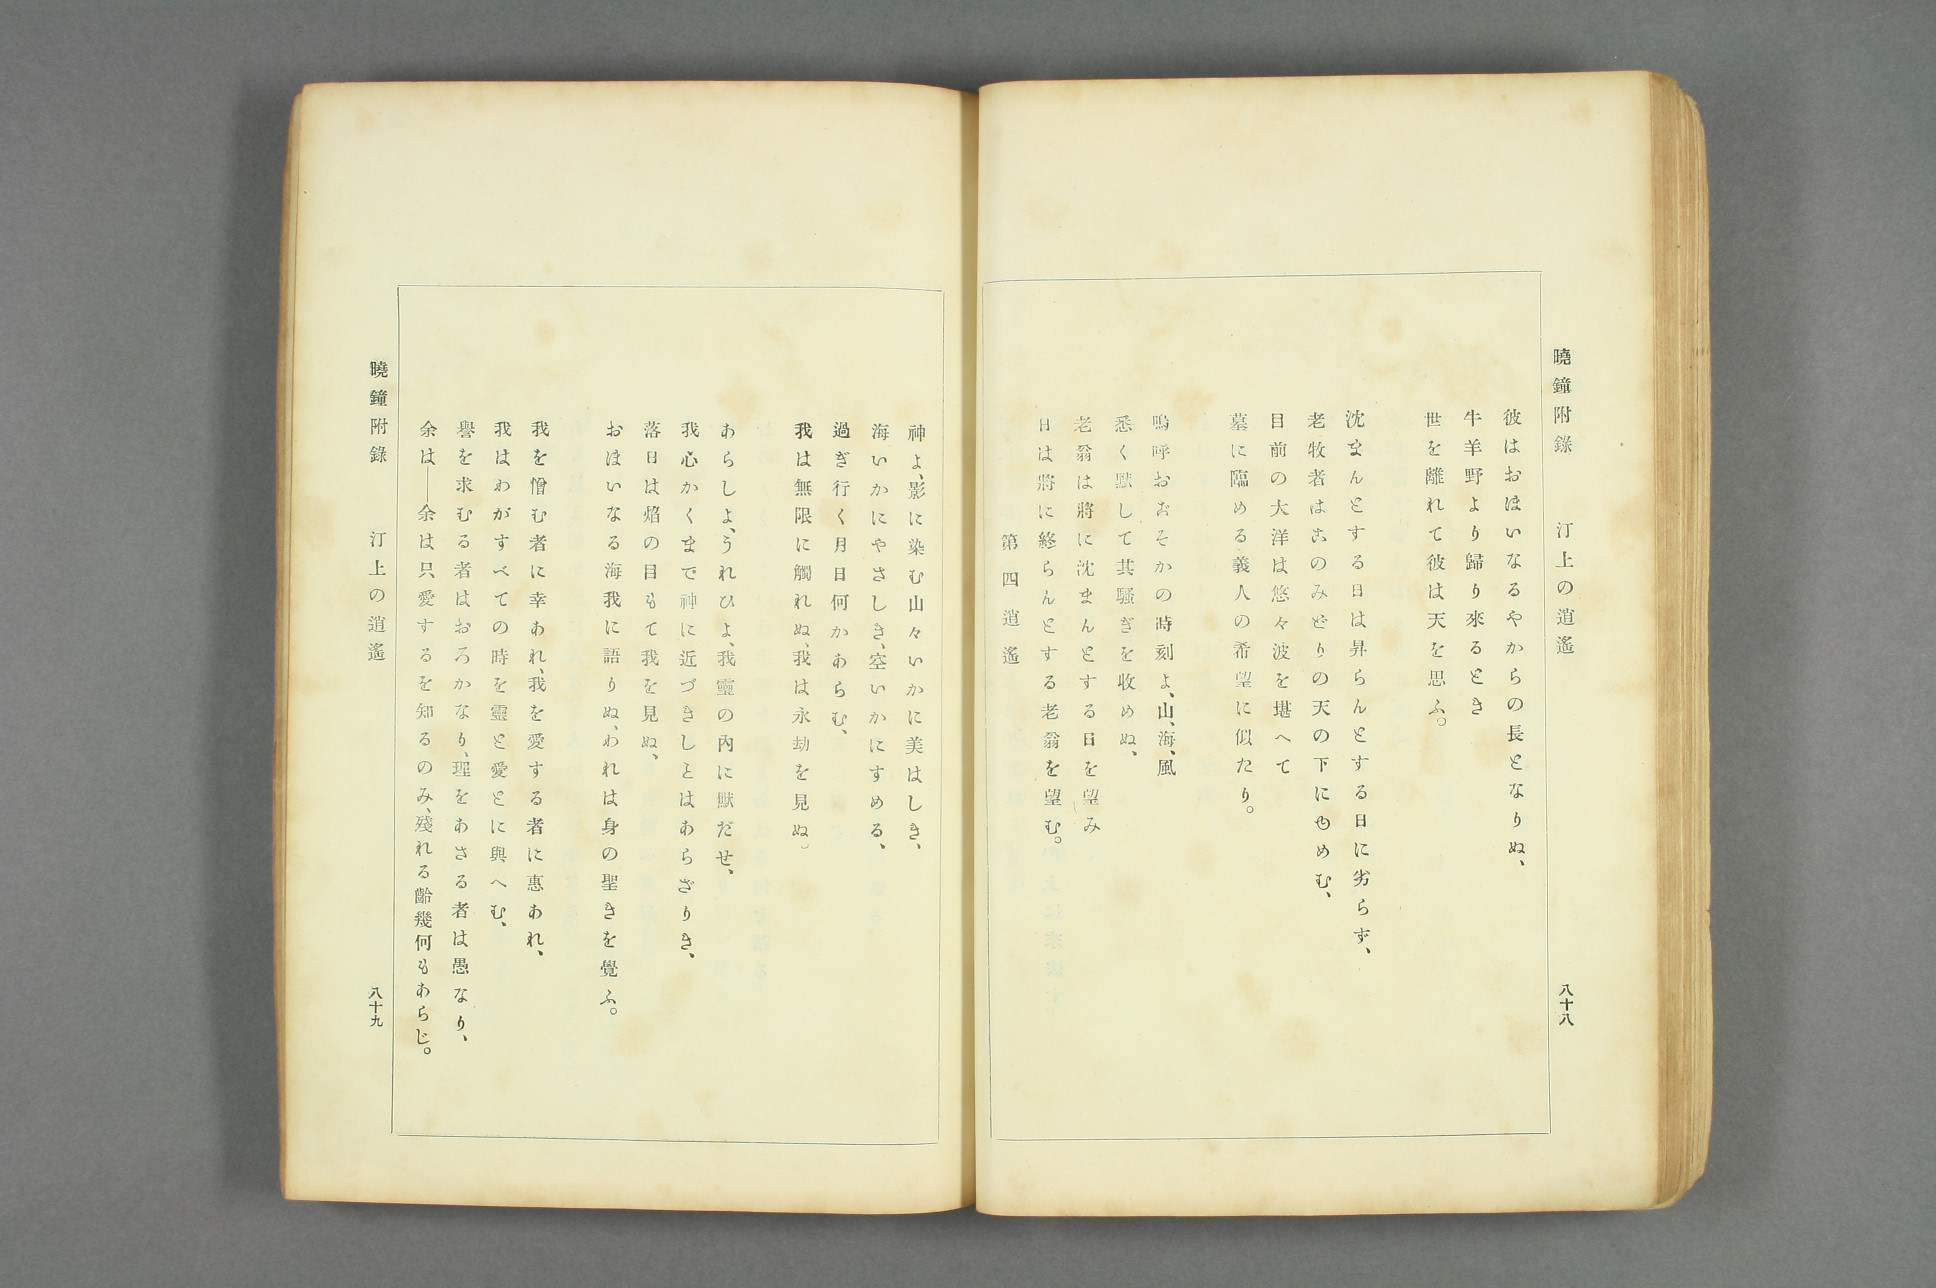 曉鐘附錄　汀上の逍遙　八十八
彼はおほいなるやからの長となりぬ、
牛羊野より歸り來るとき
世を離れて彼は天を思ふ。
沈まんとする日は昇らんとする日に劣らず、
老牧者はこのみどりの天の下にやめむ、
目前の大洋は悠々波を堪へて
墓に臨める義人の希望に似たり。
嗚呼おおそかの時刻よ、山、海、風
悉く默して其騷ぎを收めぬ、
老翁は將に沈まんとする日を望み
日は將に終らんとする老翁を望む。
第四逍遙
神よ、影に染む山々いかに美はしき、
海いかにやさしき、空いかにすめる、
過ぎ行く月日何かあらむ、
我は無限に觸れぬ、我は永劫を見ぬ。
あらしよ、うれひよ、我靈の內に默だせ、
我心かくまで神に近づきしとはあらざりき、
落日は焰の目もて我を見ぬ、
おほいなる海我に語りぬ、われは身の聖きを覺ふ。
我を憎む者に幸あれ、我を愛する者に惠あれ、
我はわがすべての時を靈と愛とに與へむ、
譽を求むる者はおろかなり、理をあさる者は愚なり、
余は──余は只愛するを知るのみ、殘れる齡幾何もあらじ。
曉鐘附錄　汀上の逍遙　八十九